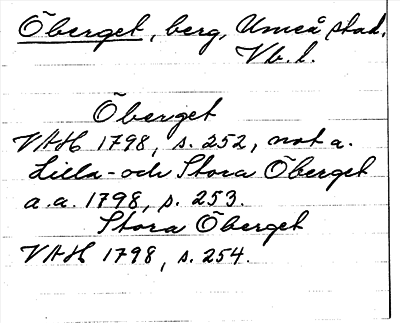 Öberget, berg, Umeå stad.
Vb.l.
Öberget
VAH 1798, s. 252, not a.
Lilla- och Stora Öberget
a.a. 1798, s. 253.
Stora Öberget
VAH 1798, s. 254.